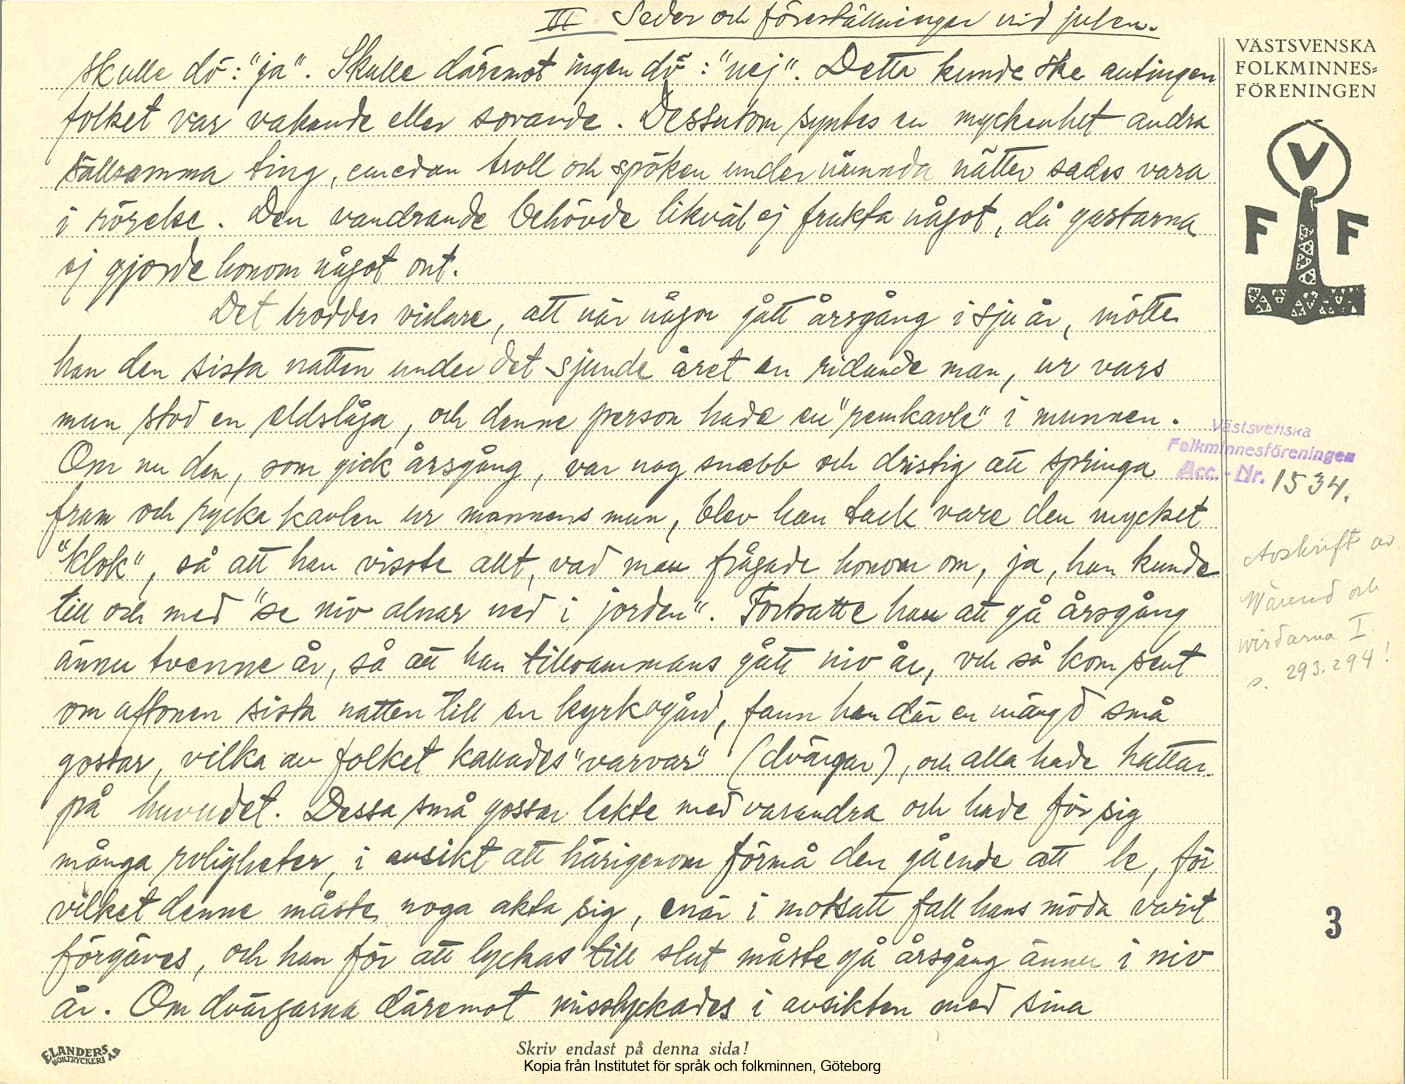 III Seder och föreställningar vid julen.
skulle dö: "ja". Skulle däremot ingen dö: "nej". Detta kunde ske antingen
folket var vakande eller sovande. Dessutom syntes en myckenhet andra
sällsamma ting, emedan troll och spöken under nämnda nätter sades vara
i rörelse. Den vandrande behövde likväl ej frukta något, då gastarna
ej gjorde honom något ont.
Det troddes vidare, att när någon gått årsgång i sju år, mötte
han den sista natten under det sjunde året en ridande man, ur vars
mun stod en eldslåga, och denne person hade en "renkavle" i munnen.
Om nu den, som gick årsgång, var nog snabb och dristig att springa
fram och rycka kavlen ur mannens mun, blev han tack vare den mycket
"klok", så att han visste allt, vad man frågade honom om, ja, han kunde
till och med "se nio alnar ned i jorden". Fortsatte han att gå årsgång
ännu tvenne år, så att han tillsammans gått nio år, och så kom sent
om aftonen sista natten till en kyrkogård, fann han där en mängd små
gossar, vilka av folket kallades "varvar" (dvärgar), och alla hade hattar
på huvudet. Dessa små gossar lekte med varandra och hade för sig
många roligheter, i avsikt att härigenom förmå den gående att le, för
vilket denne måste noga akta sig, enär i motsatt fall hans möda varit
förgäves, och han för att lyckas till slut måste gå årsgång ännu i nio
år. Om dvärgarna däremot misslyckades i avsikten med sina
VÄSTSVENSKA
FOLKMINNES=
FÖRENINGEN
V
F F
Västsvenska
Folkminnesföreningen
Acc.-Nr. 1534.
Avskrift av
Wärend och
wirdarna I.
s. 293.294!
3
ELANDERS
BOKTRYCKERI AB
Skriv endast på denna sida!
Kopia från Institutet för språk och folkminnen, Göteborg